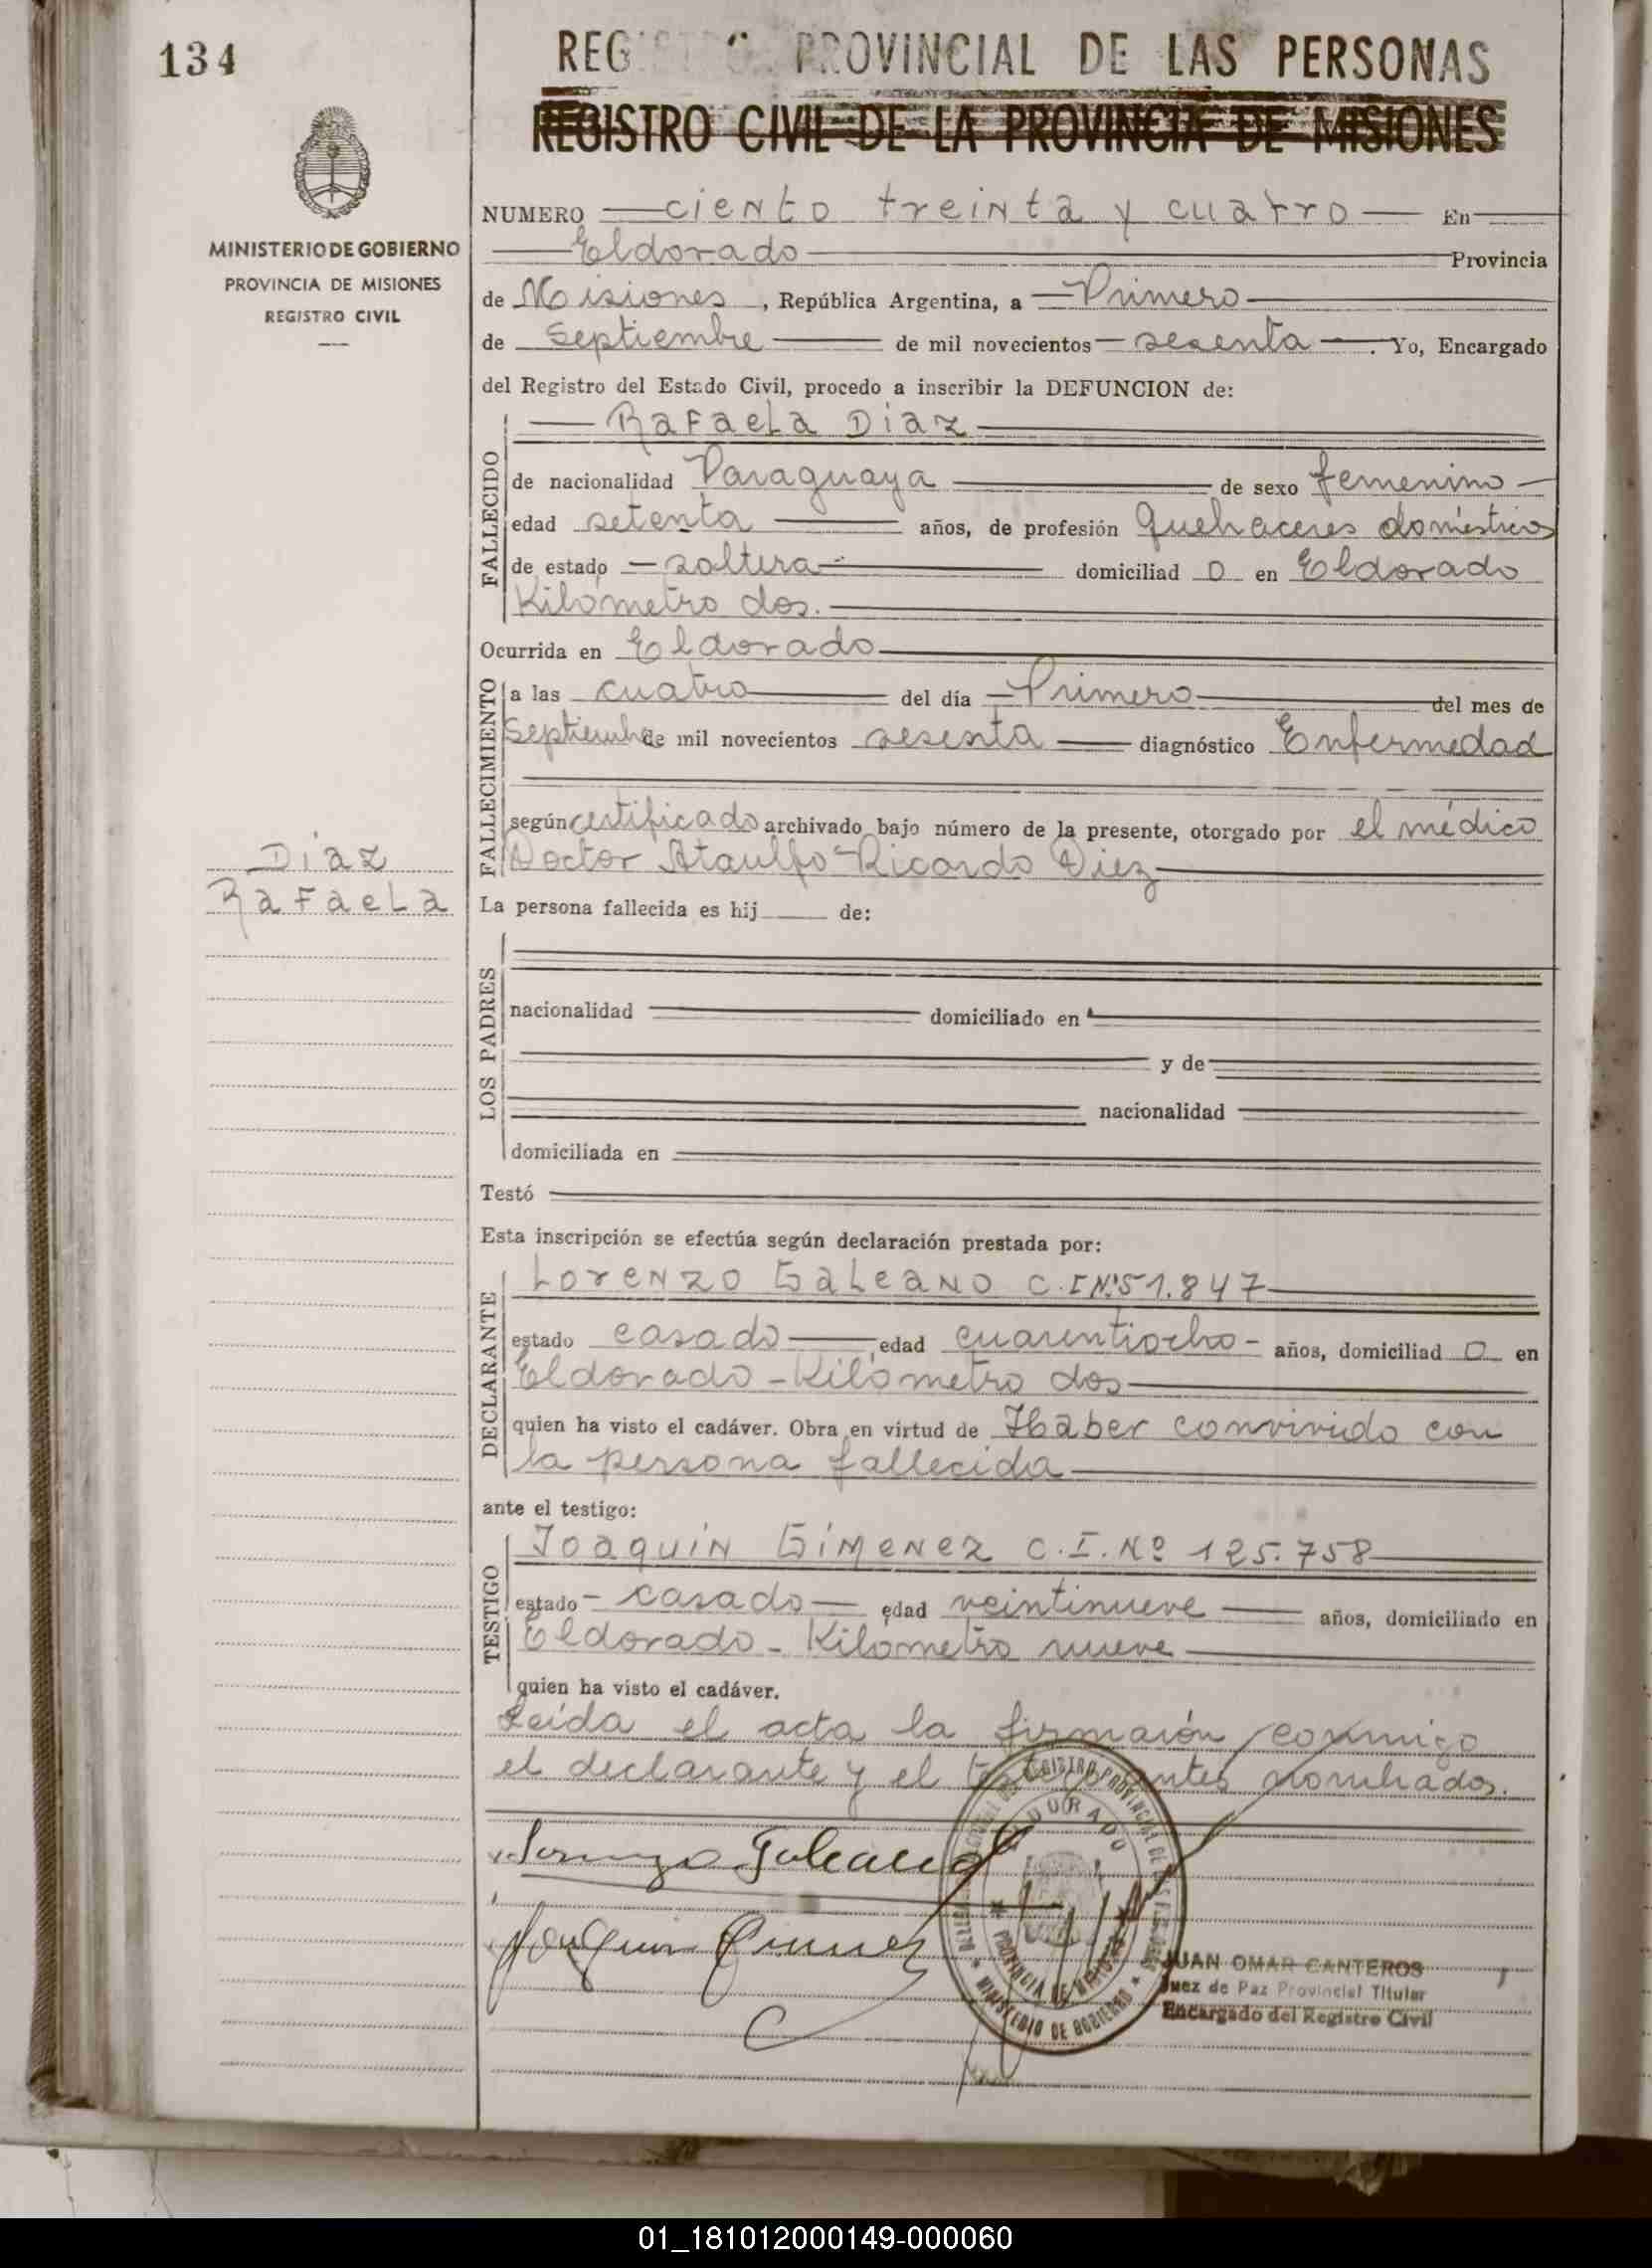 134
REGISTRO PROVINCIAL DE LAS PERSONAS
REGISTRO CIVIL DE LA PROVINCIA DE MISIONES
MINISTERIO DE GOBIERNO
PROVINCIA DE MISIONES
REGISTRO CIVIL
NUMERO ciento treinta y cuatro En
Eldorado Provincia
de Misiones, República Argentina, a Primero
de Septiembre de mil novecientos sesenta. Yo, Encargado
del Registro del Estado Civil, procedo a inscribir la DEFUNCION de:
FALLECIDO
Rafaela Diaz
de nacionalidad Paraguaya de sexo femenino
edad setenta años, de profesión Quehaceres domésticos
de estado soltera domiciliad o en Eldorado
Kilómetro dos.
Ocurrida en Eldorado
FALLECIMIENTO
a las cuatro del día Primero del mes de
Septiembre de mil novecientos sesenta diagnóstico Enfermedad
según certificado archivado bajo número de la presente, otorgado por el médico
Doctor Ataulfo Ricardo Diez
Diaz
Rafaela
La persona fallecida es hij de:
LOS PADRES
nacionalidad domiciliado en
y de
nacionalidad
domiciliada en
Testó
Esta inscripción se efectúa según declaración prestada por:
DECLARANTE
Lorenzo Galeano C.I Nº 51.847
estado casado edad cuarentiocho - años, domiciliad o en
Eldorado - Kilómetro dos
quien ha visto el cadáver. Obra en virtud de Haber convivido con
la persona fallecida
ante el testigo:
TESTIGO
Joaquín Gímenez C.I. Nº 125.758
estado - casado - edad veintinueve años, domiciliado en
Eldorado - Kilómetro nueve
quien ha visto el cadáver.
Leída el acta la firmarón conmigo
el declarante y el testigo antes nombrados.
Lorenzo Galeano
Joaquin Gimenez
REGISTRO PROVINCIAL DE LAS PERSONAS
ELDORADO
PROVINCIA DE MISIONES
MINISTERIO DE GOBIERNO
JUAN OMAR CANTEROS
Juez de Paz Provincial Titular
Encargado del Registro Civil
01_181012000149-000060